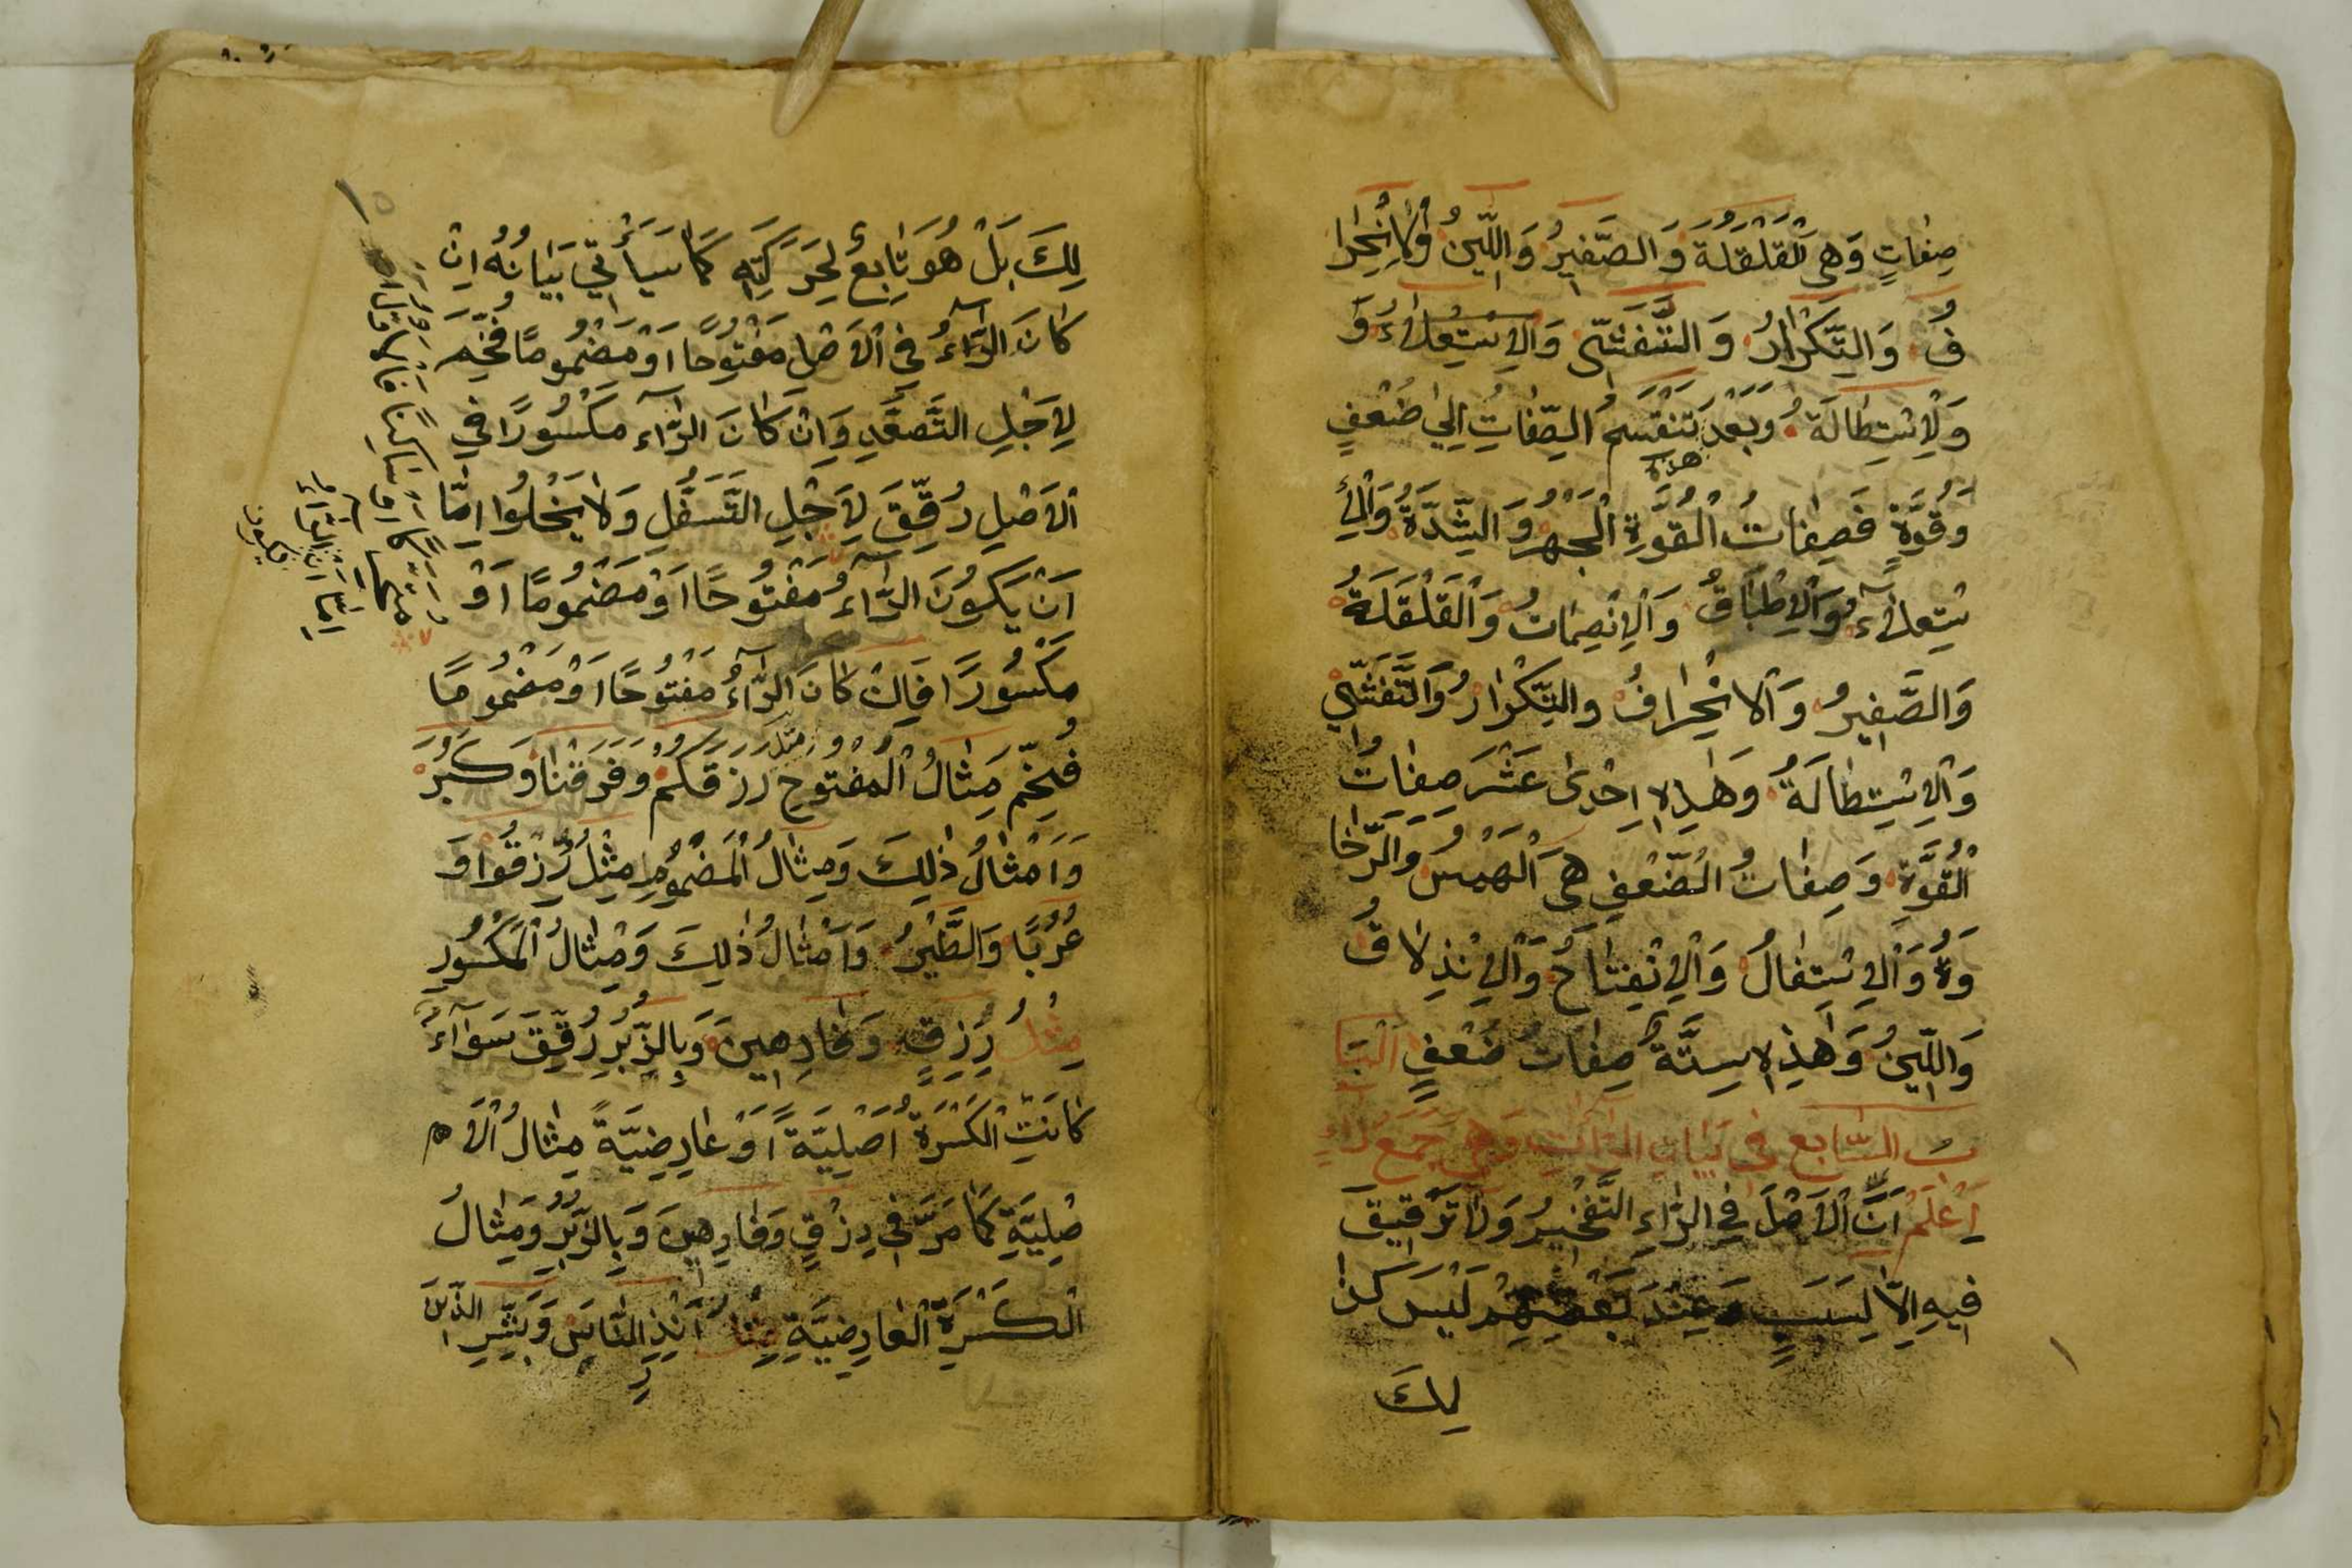 صِفَاتٍ وَهِيَ الْقَلْقَلَةُ وَالصَّفِيرُ وَاللِّينُ وَالْاِنْحِرَا
فُ وَالتَّكْرَارُ وَالتَّفَشِّى وَالْاِسْتِعْلَاءُ وَ
وَلْاِسْتِطَالَةُ وَبَعْدُ تَنْقَسِمُ هذه الصِّفَاتُ اِلَى ضُعْفٍ
وَقُوَّةٍ فَصِفَاتُ الْقُوَّةِ الْجَهْرُ وَالشِّدَّةُ وَالْاِ
سْتِعْلَآءُ وَالْاِطْبَاقُ وَالْاِنْصِمَاتُ وَالْقَلْقَلَةُ
وَالصَّفِيرُ وَالْاِنْحِرَافُ والتَّكْرَارُ وَالتَّفَشِّي
وَالْاِسْتِطَالَةُ وَهٰذِهِ اِحْدٰى عَشَرَ صِفَاتُ
الْقُوَّةِ وَصِفَاتُ الضُّعْفِ هِيَ الْهَمْسُ وَالرَّخَا
وَةُ وَالْاِسْتِفَالُ وَالْاِنْفِتَاحُ وَالْاِنْذِلَاقُ
وَاللِّينُ وَهٰذِهِ سِتَّةُ صِفَاتُ ضُعْفٍ اَلْبَا
بُ السَّابِع فِي بَيَانِ الرَّاآتِ وَهِيَ جَمْعُ رَاءٍ
اِعْلَمْ اَنَّ الْاَصْلَ فِي الرَّاءِ التَّفْخِيمُ وَلَا تَرْقِيقَ
فِيهِ اِلَّا لِسَبَبٍ وَعِنْدَ بَعْضِهِمْ لَيْسَ كَذٰ
لِكَ
لِكَ بَلْ هُوَ تَابِعٌ لِحَرَكَتِهِ كَمَا سَيَأْتِي بَيَانُهُ اِنْ
كَانَ الرَّآءُ فِي الْاَصْلِ مَفْتُوحًا اَوْ مَضْمُومًا فُخِّمَ
لِاَجْلِ التَّصَعُّدِ وَاِنْ كَانَ الرَّآءُ مَكْسُورًا فِي
الْاَصْلِ رُقِّقَ لِاَجْلِ التَّسَفُّلِ وَلَا يَخْلُوا اِمَّا
اَنْ يَكُونَ الرَّآءُ مَفْتُوحًا اَوْ مَضْمُومًا اَوْ
مَكْسُورًا فَاِنْ كَانَ الرَّآءُ مَفْتُوحًا اَوْ مَضْمُومًا
فُخِّمَ مِثَالُ الْمَفْتُوحِ مثل رَزَقَكُمْ وَفَرَقْنَا وَكَبُرَ
وَاَمْثَالُ ذٰلِكَ وَمِثَالُ الْمَضْمُومِ مِثْلُ رُزِقُوا وَ
عُرُبًا وَالطَّيْرُ وَاَمْثَالُ ذٰلِكَ وَمِثَالُ الْمَكْسُورِ
مِثْلُ رِزْقٍ وَفَارِهِينَ وَبِالزُّبُرِ رُقِّقَ سَوَآءٌ
كَانَتْ الْكَسْرَةُ اَصْلِيَّةً اَوْ عَارِضِيَّةً مِثَالُ الْاَ
صْلِيَّةِ كَمَا مَرَّ فِي رِزْقٍ وَفَارِهِينَ وَبِالزُّبُرِ وَمِثَالُ
الْكَسْرَةِ الْعَارِضِيَّةِ مِثْلُ اَنْذِرِ النَّاسَ وَبَشِّرِ الَّذِينَ